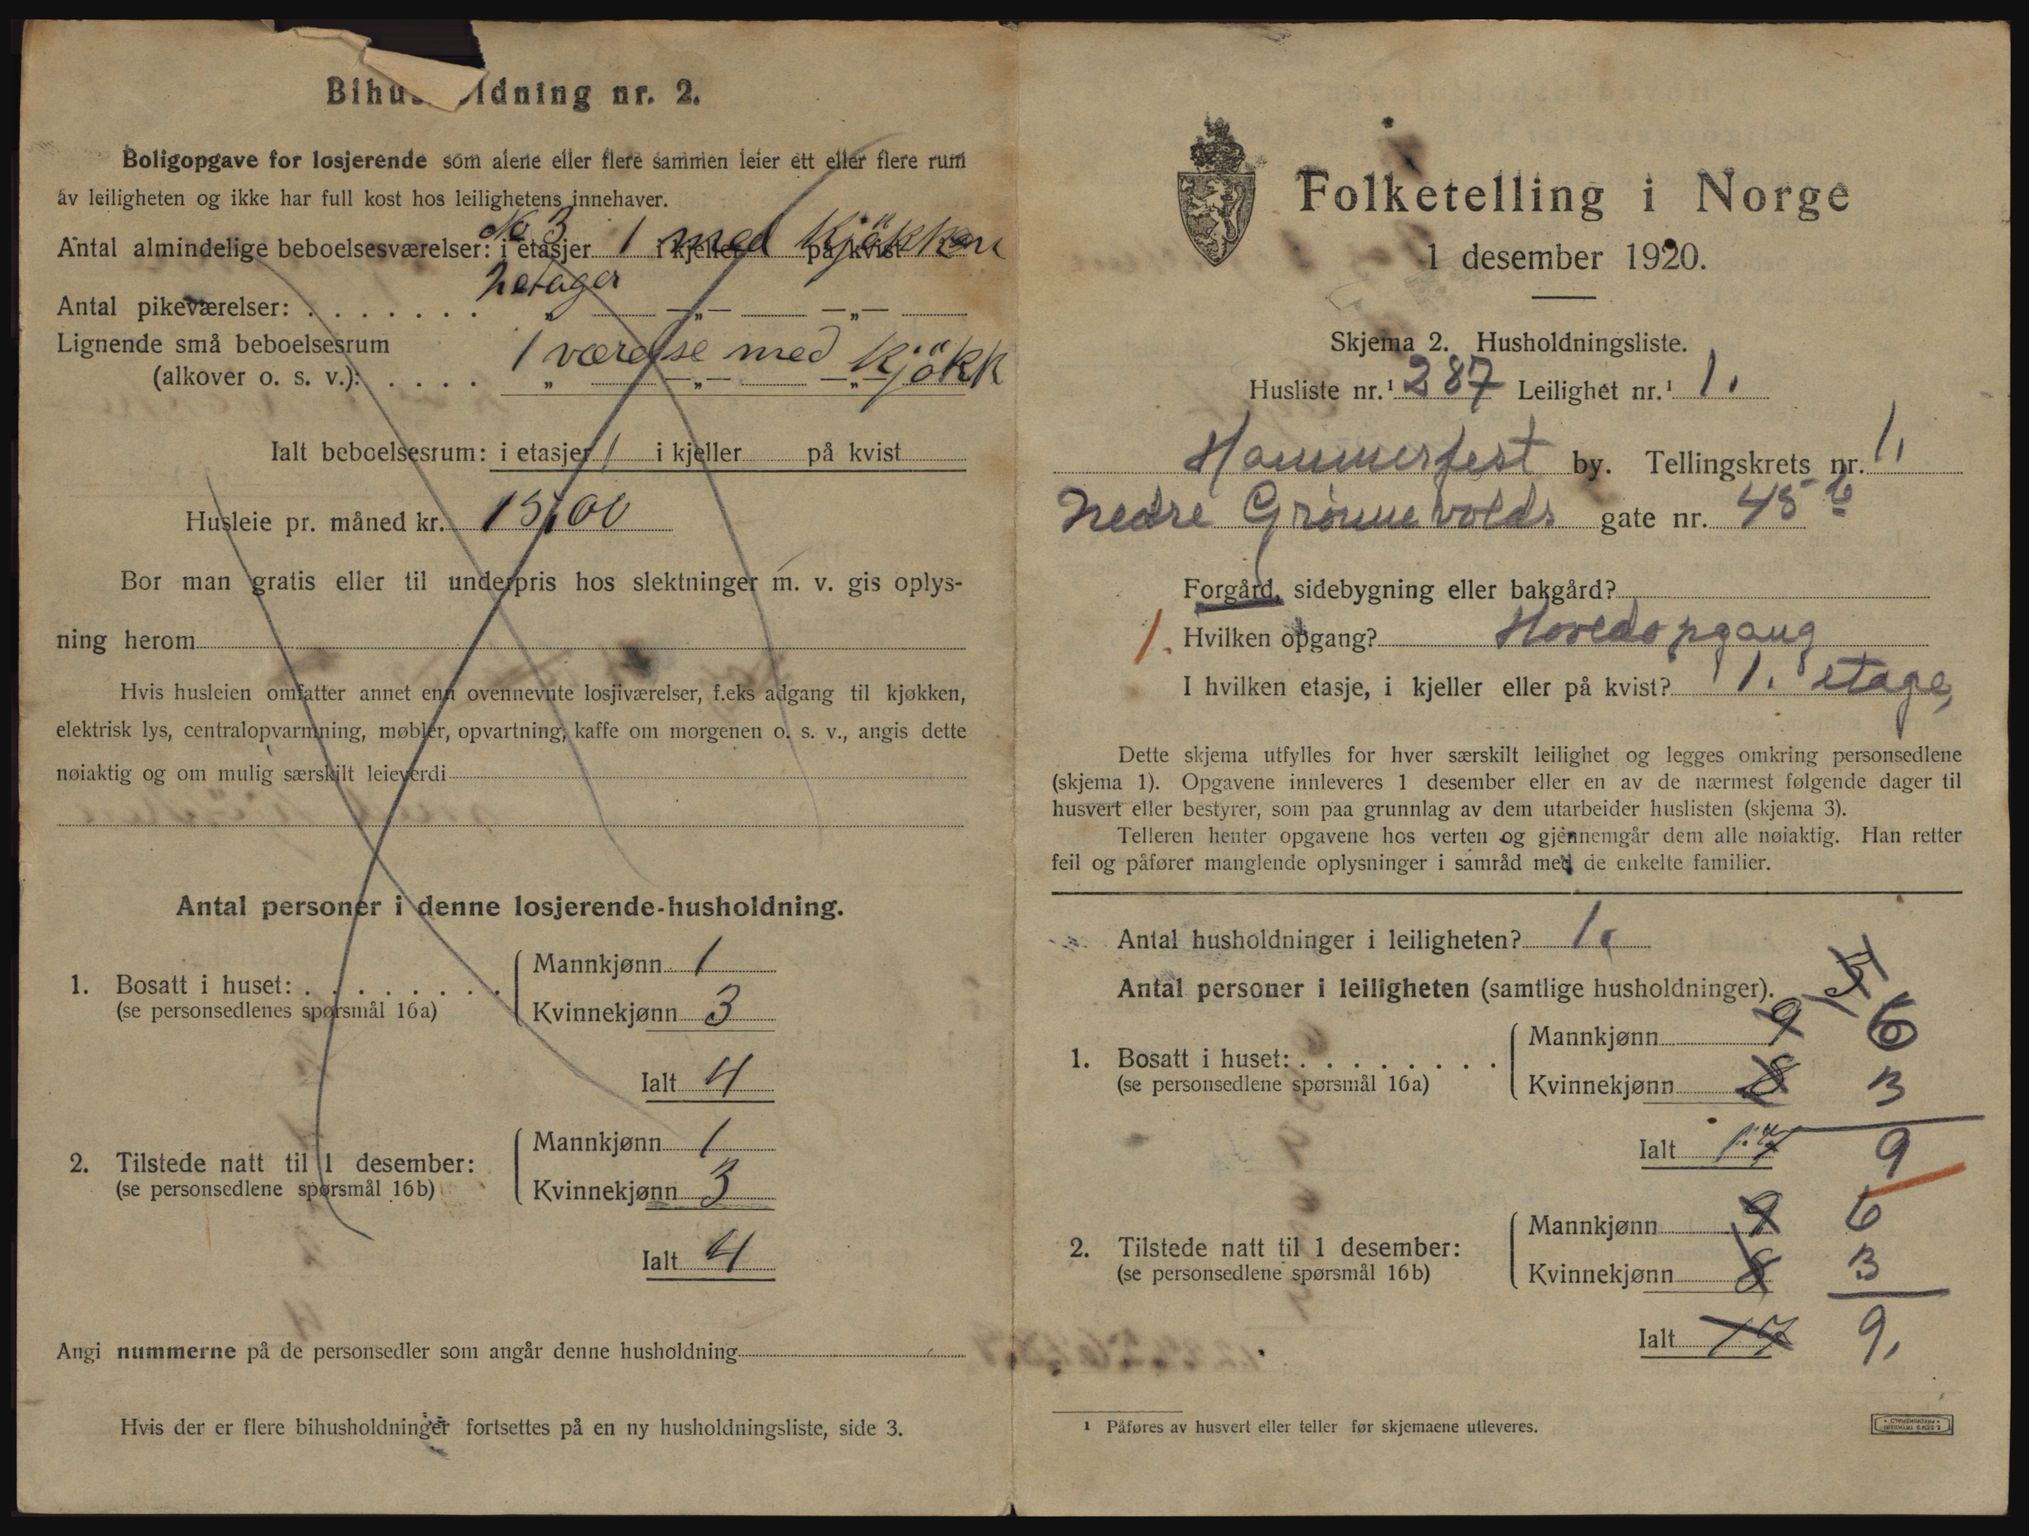 Bihus ldning nr. 2.
Boligopgave for losjerende som alene eller flere sammen leier ett eller flere rum
av leiligheten og ikke har full kost hos leilighetens innehaver.
No 3
Antal almindelige beboelsesværelser: i etasjer 1 med kjökken i kjeller på kvist
2 etager
Antal pikeværelser: . . . . . . . „ —„— —„—
Lignende små beboelsesrum
1 værelse med kjökk
(alkover o. s. v.): . . . . „ —„— —„—
Ialt beboelsesrum: i etasjer 1 i kjeller på kvist
Husleie pr. måned kr. 15,00
Bor man gratis eller til underpris hos slektninger m. v. gis oplys-
ning herom
Hvis husleien omfatter annet enn ovennevnte losjiværelser, f.eks adgang til kjøkken,
elektrisk lys, centralopvarmning, møbler, opvartning, kaffe om morgenen o. s. v., angis dette
nøiaktig og om mulig særskilt leieverdi
Antal personer i denne losjerende-husholdning.
1. Bosatt i huset: . . . . . . . .
(se personsedlenes spørsmål 16a)
Mannkjønn 1
Kvinnekjønn 3
Ialt 4
2. Tilstede natt til 1 desember:
(se personsedlene spørsmål 16b)
Mannkjønn 1
Kvinnekjønn 3
Ialt 4
Angi nummerne på de personsedler som angår denne husholdning
Hvis der er flere bihusholdninger fortsettes på en ny husholdningsliste, side 3.
Folketelling i Norge
1 desember 1920.
Skjema 2. Husholdningsliste.
Husliste nr.¹ 287 Leilighet nr.¹ 1.
Hammerfest by. Tellingskrets nr. 1.
Nedre Grønnevolds gate nr. 45 b
Forgård, sidebygning eller bakgård?
1. Hvilken opgang? Hovedopgang
I hvilken etasje, i kjeller eller på kvist? 1. etage,
Dette skjema utfylles for hver særskilt leilighet og legges omkring personsedlene
(skjema 1). Opgavene innleveres 1 desember eller en av de nærmest følgende dager til
husvert eller bestyrer, som paa grunnlag av dem utarbeider huslisten (skjema 3).
Telleren henter opgavene hos verten og gjennemgår dem alle nøiaktig. Han retter
feil og påfører manglende oplysninger i samråd med de enkelte familier.
Antal husholdninger i leiligheten? 1.
Antal personer i leiligheten (samtlige husholdninger).
1. Bosatt i huset: . . . . . . . .
(se personsedlene spørsmål 16a)
Mannkjønn 9 6
Kvinnekjønn 8 3
Ialt 17 9
2. Tilstede natt til 1 desember:
(se personsedlene spørsmål 16b)
Mannkjønn 9 6
Kvinnekjønn 8 3
Ialt 17 9.
¹ Påføres av husvert eller teller før skjemaene utleveres.